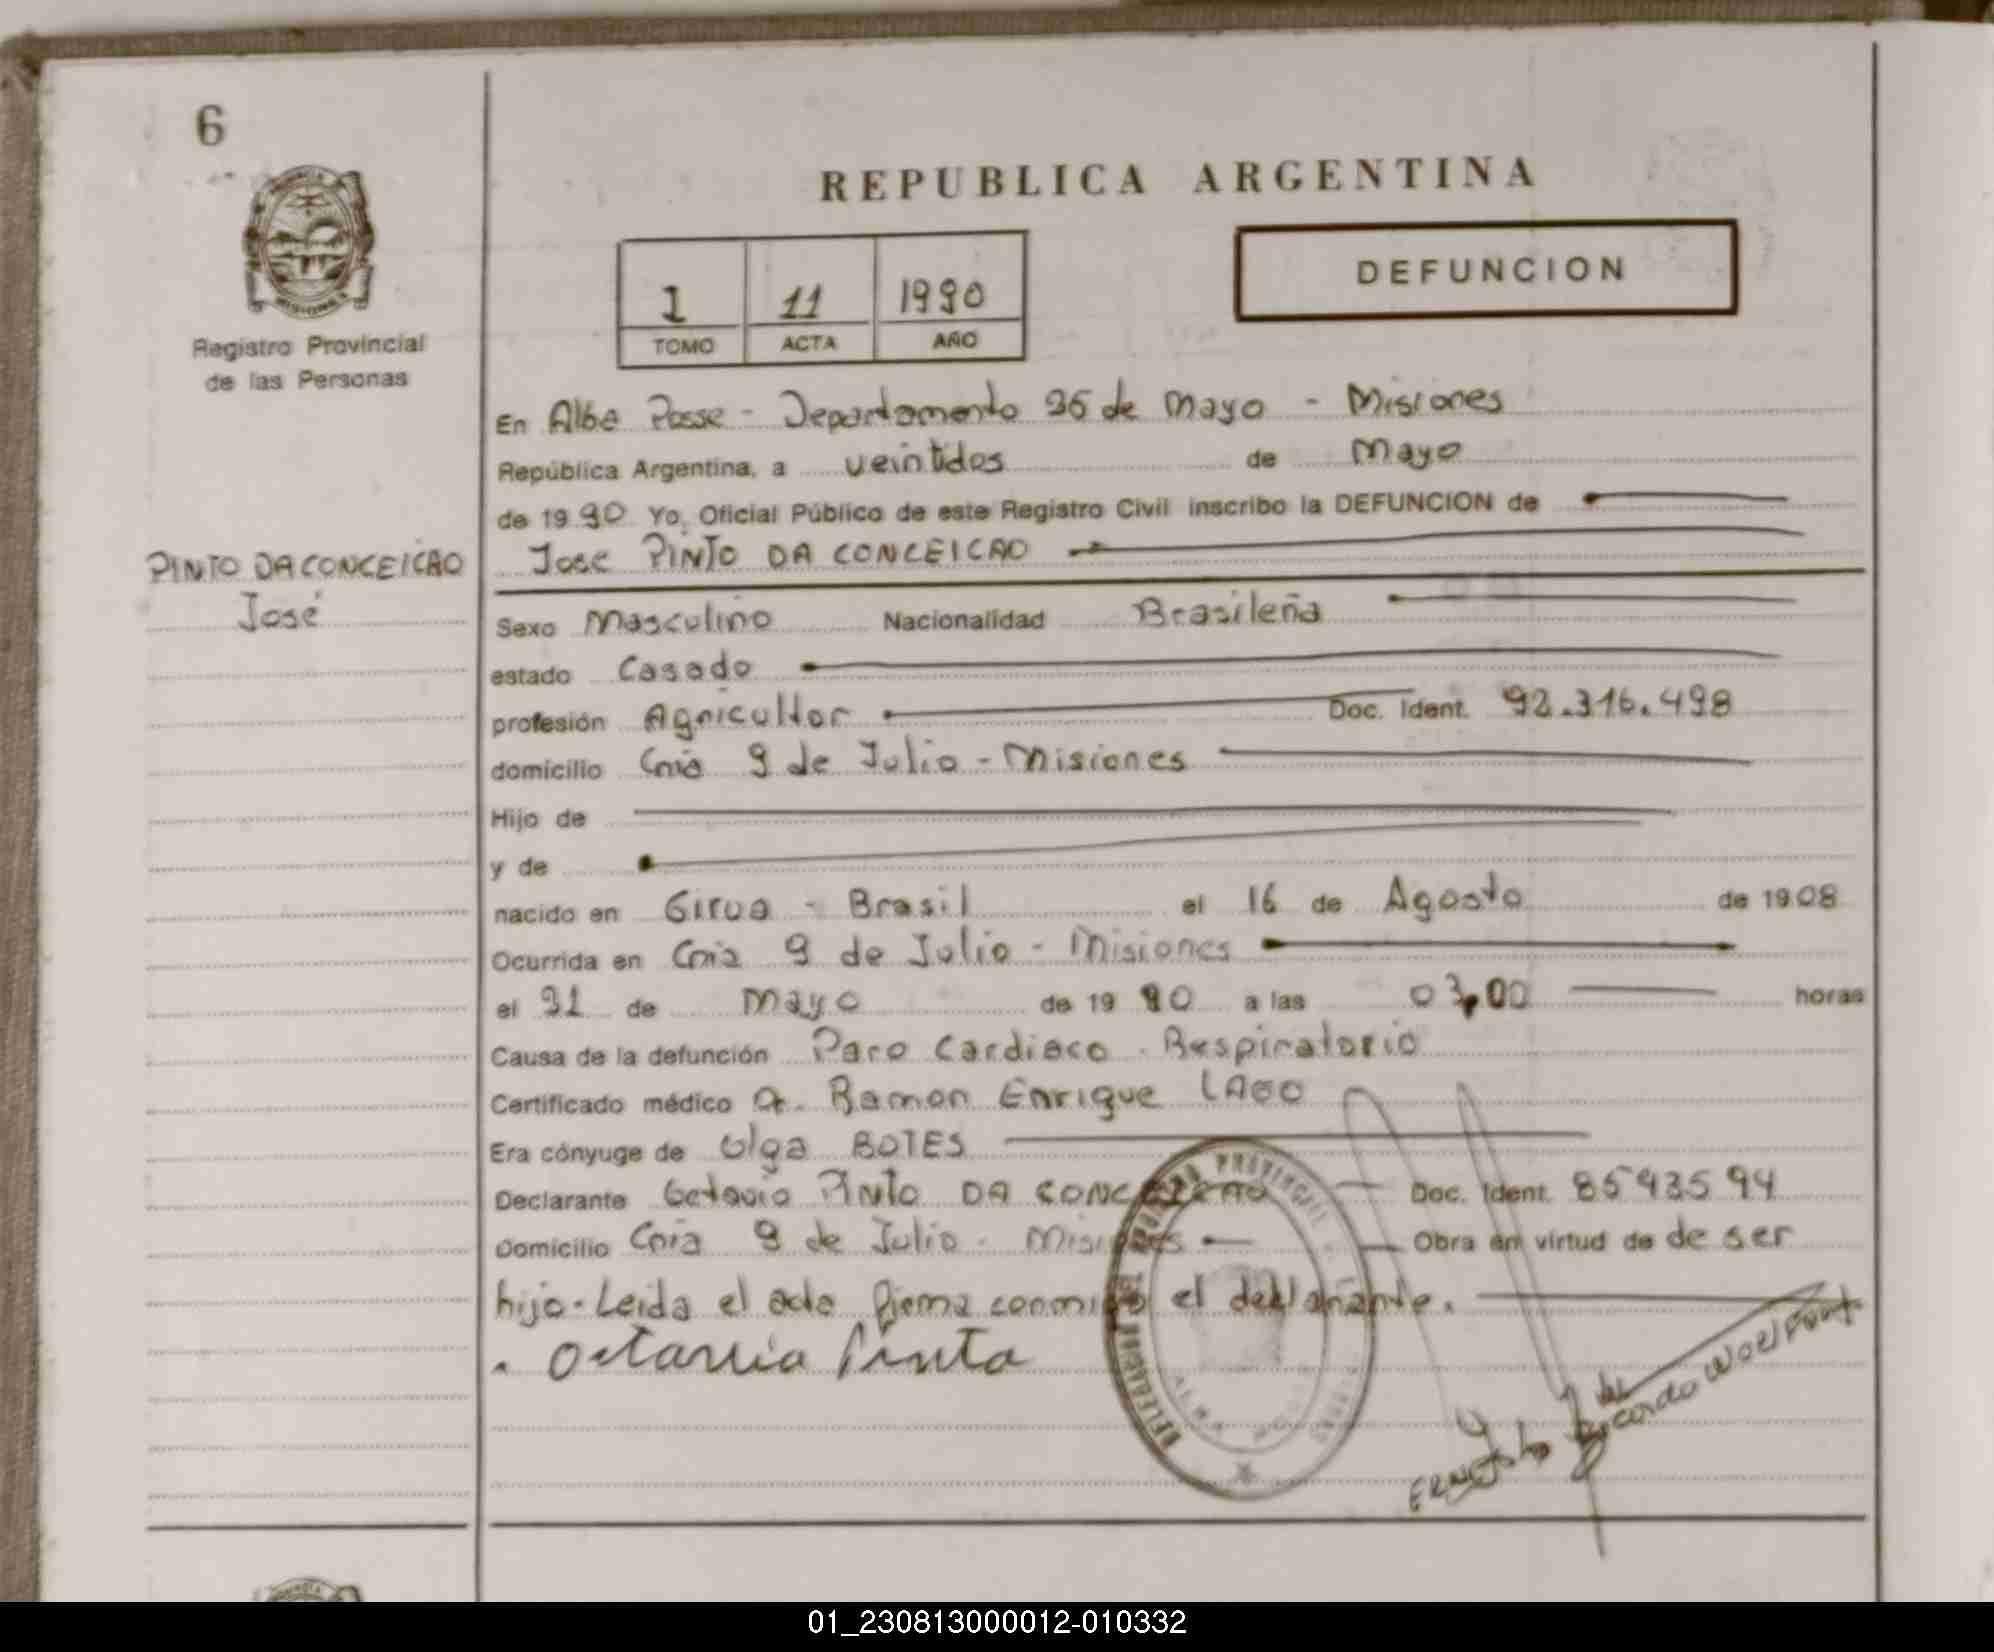 6
REPUBLICA ARGENTINA
DEFUNCION
1 11 1990
TOMO ACTA AÑO
Registro Provincial
de las Personas
En Alba Posse - Departamento 25 de Mayo - Misiones
República Argentina, a veintidos de Mayo
de 1990 Yo, Oficial Público de este Registro Civil inscribo la DEFUNCION de
PINTO DA CONCEICAO
José
Jose PINTO DA CONCEICAO
Sexo Masculino Nacionalidad Brasileña
estado Casado
profesión Agricultor Doc. Ident. 92.316.498
domicilio Cnia 9 de Julio - Misiones
Hijo de
y de
nacido en Girua - Brasil el 16 de Agosto de 1908
Ocurrida en Cnia 9 de Julio - Misiones
el 21 de Mayo de 1990 a las 03,00 horas
Causa de la defunción Paro Cardiaco - Respiratorio
Certificado médico Dr. Ramon Enrique LAGO
Era cónyuge de Olga BOTES
Declarante Octavio PINTO DA CONCEICAO Doc. Ident. 8543594
Domicilio Cnia 9 de Julio - Misiones Obra en virtud de de ser
hijo - Leida el acta firma conmigo el declarante.
Octavio Pinto
PROVINCIAL
DELEGACION
Ernesto Ricardo
01_230813000012-010332